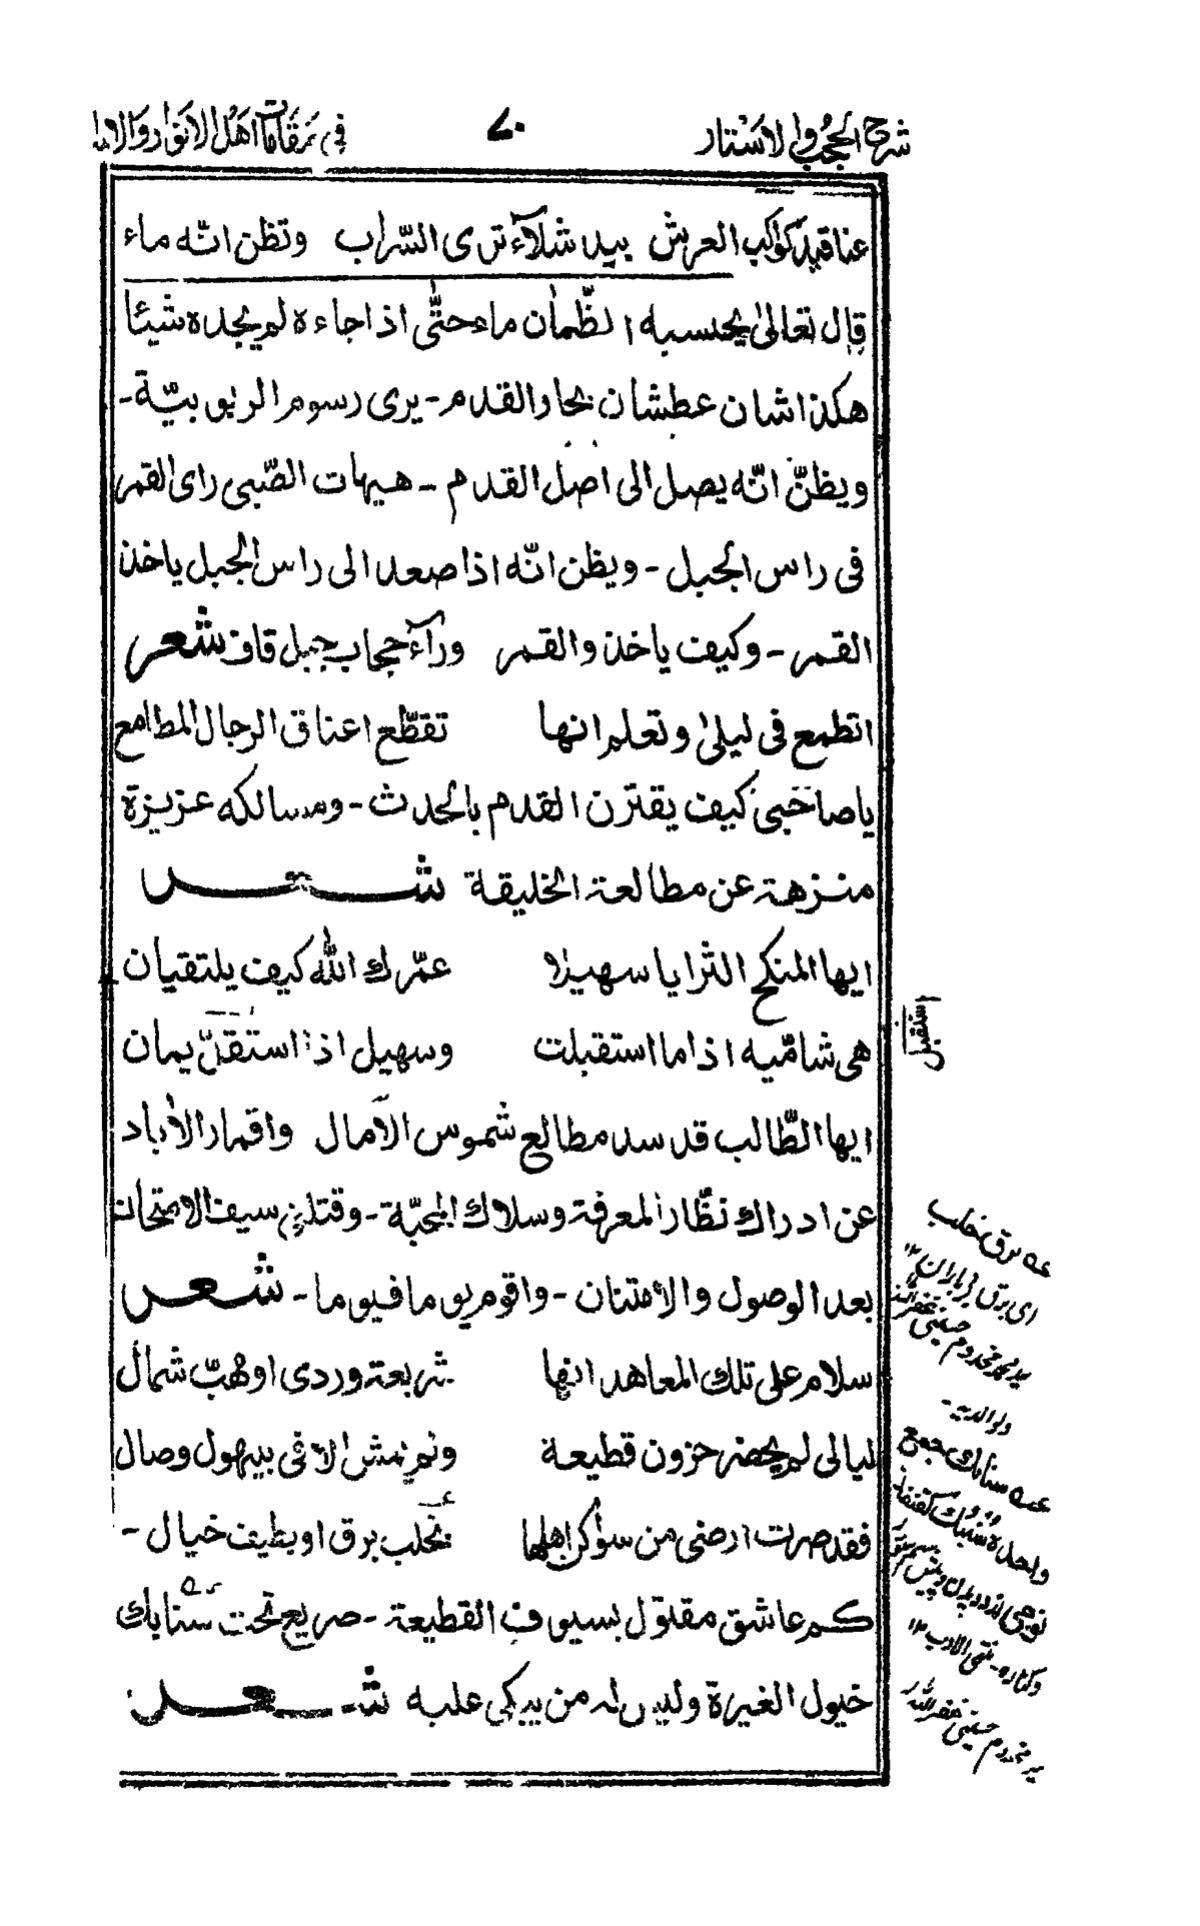 شرح الحجب والاستار ٧٠ في مقامات اهل الانوار والاسرا
عناقيد كواكب العرش بيد شلاّء ترى السّراب وتظن انّه ماء
قال تعالىٰ يحسبه الظّمان ماء حتّٰى اذا جاءه لم يجده شيئا
هكذا شان عطشان بحار القدم - يرى رسوم الربوبيّة -
ويظنّ انّه يصل الى اصل القدم - هيهات الصّبى راى القمر
فى راس الجبل - ويظن انّه اذا صعد الى راس الجبل ياخذ
القمر - وكيف ياخذ والقمر ورآء حجاب جبل قاف شعر
اتطمع فى ليلىٰ وتعلم انها تقطّع اعناق الرجال المطامع
ياصاحبى كيف يقترن القدم بالحدث - ومسالكه عزيزة
منزهة عن مطالعة الخليقة شعر
ايها المنكح الثريا سهيلا عمّرك الله كيف يلتقيان
هى شاميّه اذا ما استقبلت وسهيل اذا استقلّ يمان
استقبل
ايها الطّالب قد سد مطالع شموس الآمال واقمار الأباد
عن ادراك نظّار المعرفة وسلاك المحبّة - وقتلن سيف الامتحان
بعد الوصول والأمتنان - واقوم يوما فيوما - شعر
سلام على تلك المعاهد انها شريعة وردى اوهبّ شمال
ليالى لم يحضر حزون قطيعة ولم نمش الا فى سهول وصال
فقد صرت ارضى من سواكن اهلها بخلب برق او بطيف خيال -
كم عاشق مقتول بسيوف القطيعة - صريع تحت سنابك
خيول الغيرة وليس له من يبكى عليه شعر
عه برق خلب
اى برق بى باران ١٢
مخدوم حسينى غفر الله
ولوالديه -
عه سنابك جمع
واحده سنبك كقنفذ
وكناره - منتهى الادب ١٢
مخدوم حسينى غفر الله